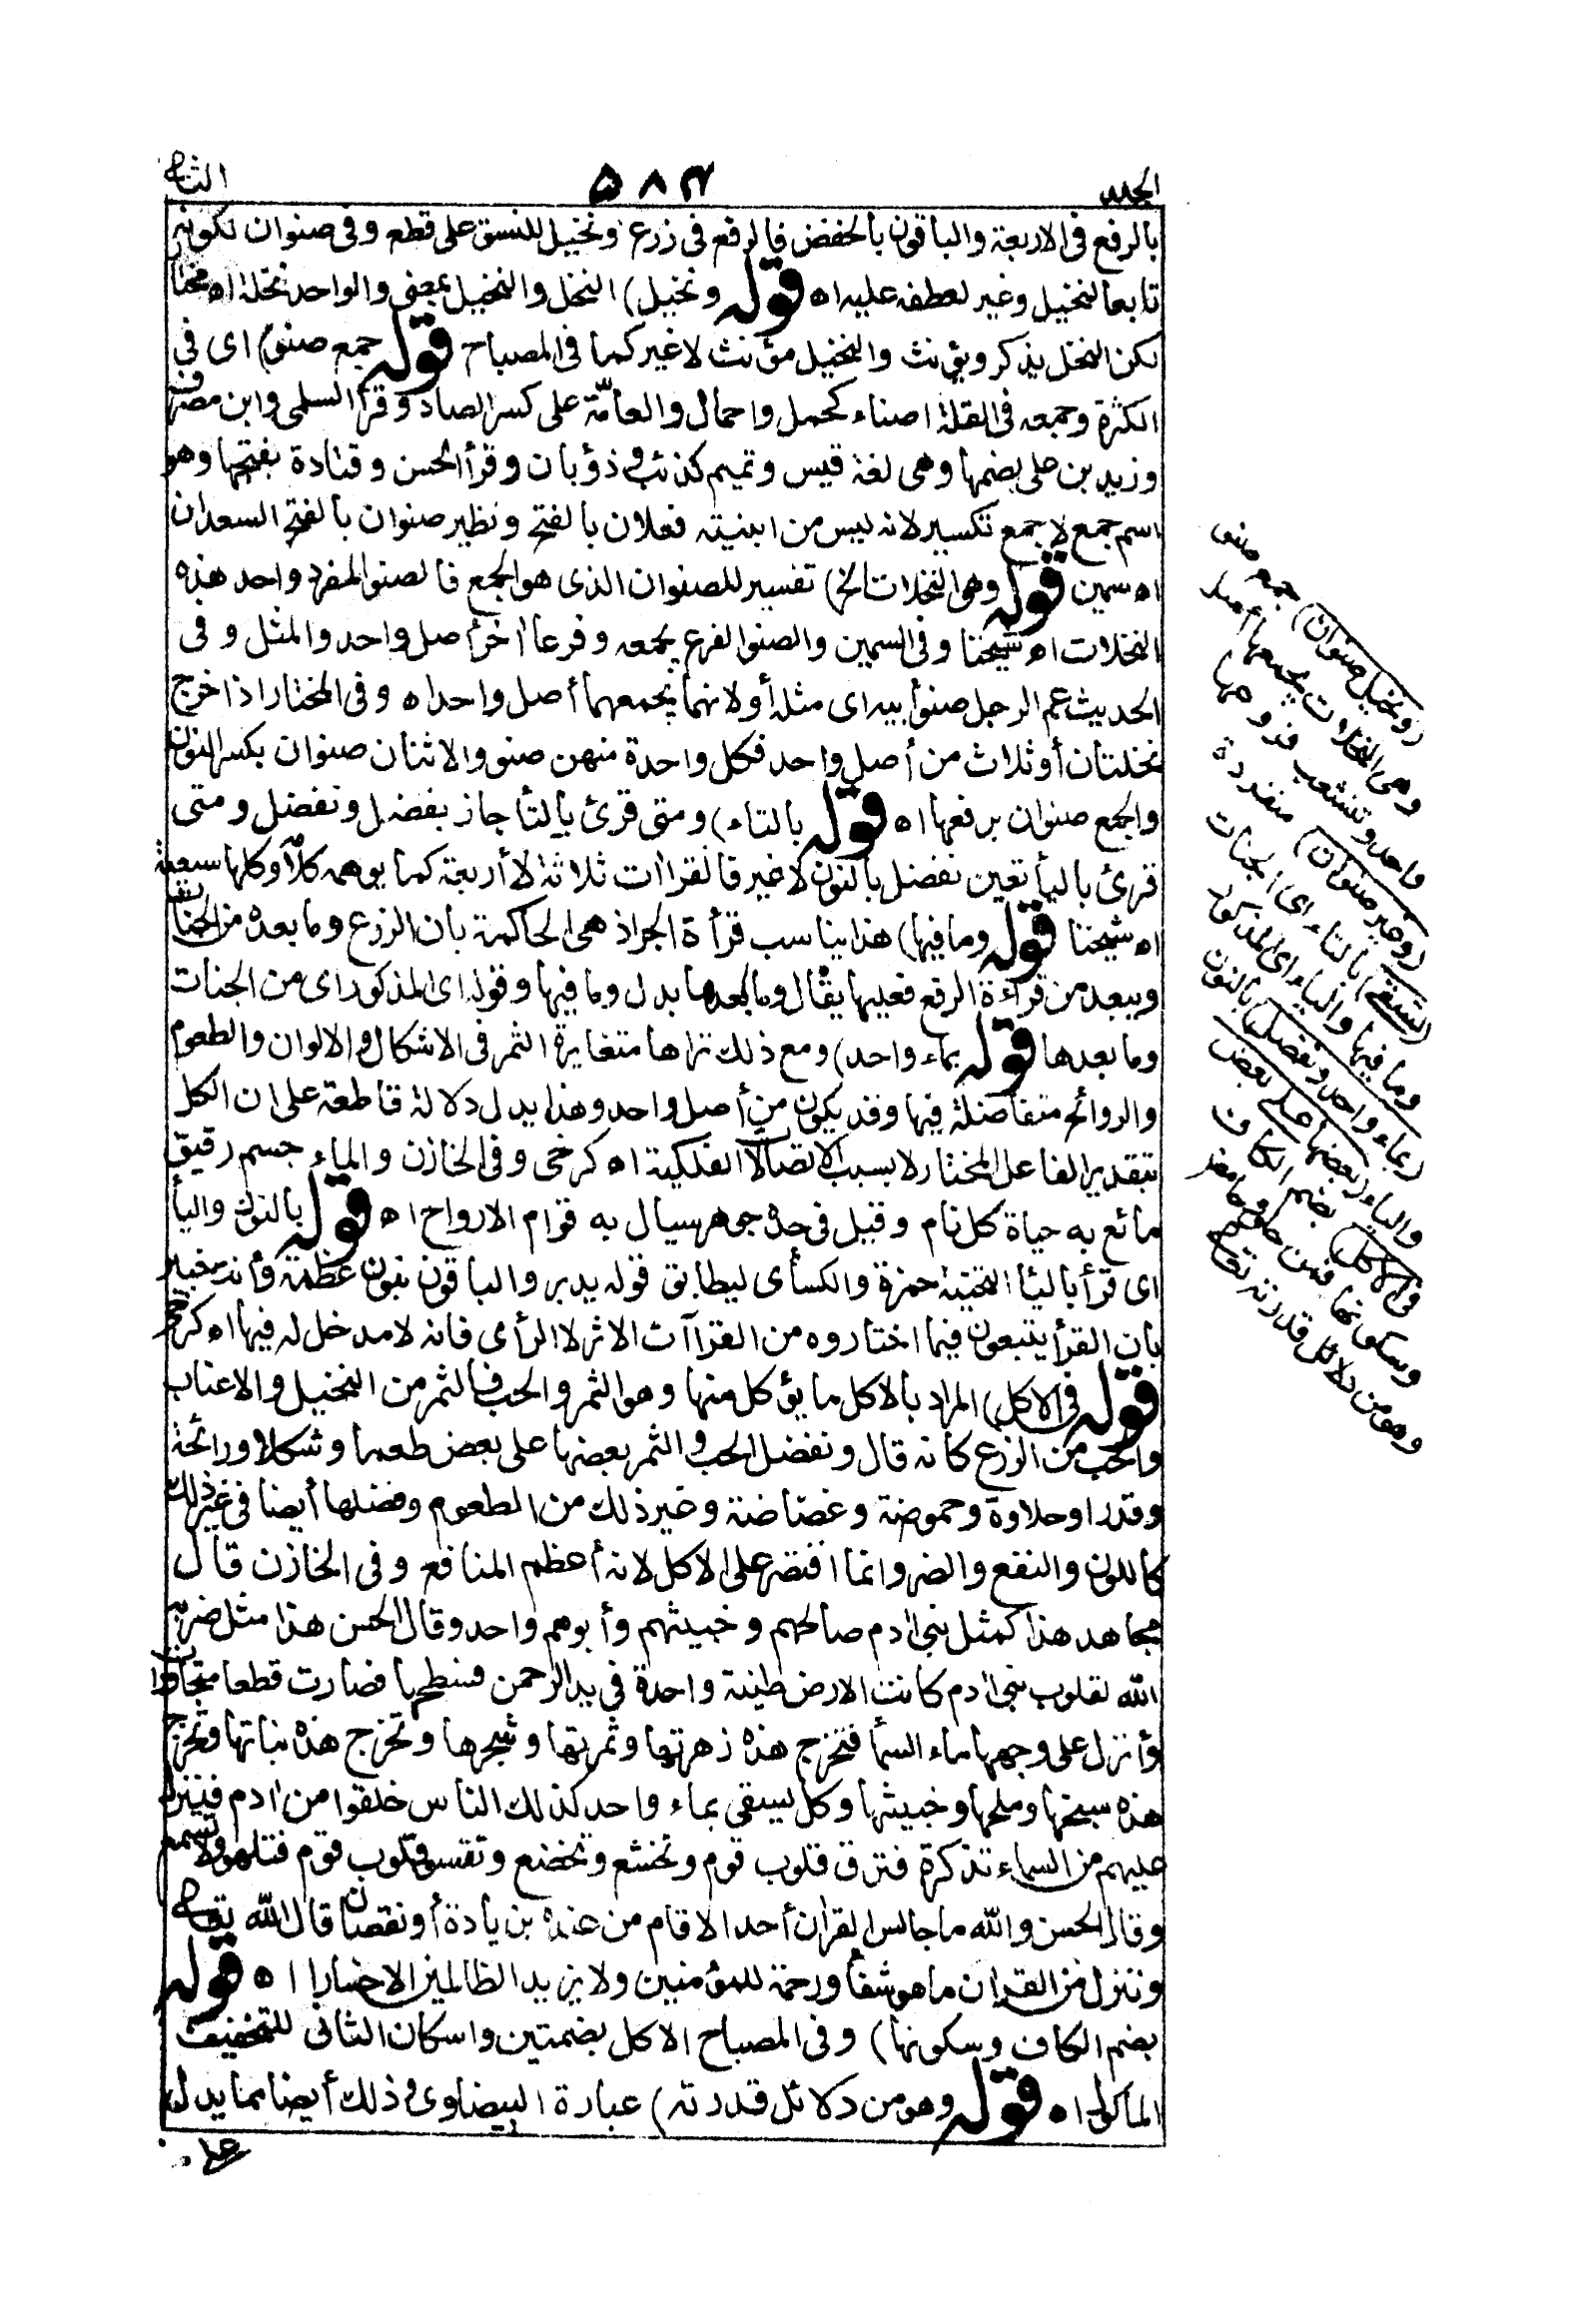 الجلد
۵۸۴
الثانی
بالرفع فى الاربعة والباقون بالخفض فالرفع فى زرع ونخيل للنسق على قطع وفى صنوان لكونه
تابعا لنخيل وغير لعطفه عليه اه قوله ونخيل) النخل والنخيل بمعنى والواحد نخلة اه مختار
لكن النخل يذكر ويؤنث والنخيل مؤنث لا غير كما فى المصباح قوله جمع صنو) اى فى
الكثرة وجمعه فى القلة اصناء كحمل واحمال والعامّة على كسر الصاد وقرأ السلمى وابن مصرف
وزيد بن على بضمها وهى لغة قيس وتميم كذئب وذؤبان وقرأ الحسن وقتادة بفتحها وهو
اسم جمع لا جمع تكسير لانه ليس من ابنيته فعلان بالفتح ونظير صنوان بالفتح السعدان
اه سمين قوله وهى النخلات الخ) تفسير للصنوان الذى هو الجمع فالصنو المفرد واحد هذه
النخلات اه شيخنا وفى السمين والصنو الفرع يجمعه وفرعا اخر أصل واحد والمثل وفى
الحديث عم الرجل صنو أبيه اى مثله أو لانهما يجمعهما أصل واحد اه وفى المختار اذا خرج
نخلتان أو ثلاث من أصل واحد فكل واحدة منهن صنو والاثنان صنوان بكسر النون
والجمع صنوان برفعها اه قوله بالتاء) ومتى قرئ بالتأ جاز يفضل ونفضل ومتى
قرئ باليأ تعين نفضل بالنون لا غير فالقراات ثلاثة لا أربعة كما يوهمه كلامه وكلها سبعية
اه شيخنا قوله وما فيها) هذا يناسب قرأة الجر اذ هى الحاكمة بان الزرع وما بعده من الجنات
ويبعد من قرأءة الرفع فعليها يقال وما بعدها بدل وما فيها وقوله اى المذكور اى من الجنات
وما بعدها قوله بماء واحد) ومع ذلك تراها متغايرة الثمر فى الاشكال والالوان والطعوم
والروائح متفاضلة فيها وقد يكون من أصل واحد وهذا يدل دلالة قاطعة على ان الكل
بتقدير الفاعل المختار لا بسبب الاتصالات الفلكية اه كرخى وفى الخازن والماء جسم رقيق
مائع به حياة كل نام وقيل فى حده جوهر سيال به قوام الارواح اه قوله بالنون واليأ
اى قرأ باليأ التحتية حمزة والكسأى ليطابق قوله يدبر والباقون بنون عظمة وأنت خبير
بان القرأ يتبعون فيما اختاروه من القراآت الاثر لا الرأى فانه لا مدخل له فيها اه كرخى
قوله فى الاكل) المراد بالاكل ما يؤكل منها وهو الثمر والحب فالثمر من النخيل والاعناب
والحب من الزرع كانه قال ونفضل الحب والثمر بعضها على بعض طعما وشكلا ورائحة
وقدرا وحلاوة وحموضة وغضاضة وغير ذلك من الطعوم وفضلها أيضا فى غير ذلك
كاللون والنفع والضر وانما اقتصر على الاكل لانه أعظم المنافع وفى الخازن قال
مجاهد هذا كمثل بنى ادم صالحهم وخبيثهم وأبوهم واحد وقال الحسن هذا مثل ضربه
الله لقلوب بنى ادم كانت الارض طينة واحدة فى يد الرحمن فسطحها فصارت قطعا متجاورات
وأنزل على وجهها ماء السمأ فتخرج هذه زهرتها وثمرتها وشجرها وتخرج هذه نباتها وتخرج
هذه سبخها وملحها وخبيثها وكل يسقى بماء واحد كذلك الناس خلقوا من ادم فينزل
عليهم من السماء تذكرة فترق قلوب قوم وتخشع وتخضع وتقسو قلوب قوم فتلهو ولا تسمع
وقال الحسن والله ما جالس القران أحد الا قام من عنده بزيادة أو نقصان قال الله تعالى
وننزل من القران ما هو شفأ ورحمة للمؤمنين ولا يزيد الظالمين الا خسارا اه قوله
بضم الكاف وسكونها) وفى المصباح الاكل بضمتين واسكان الثانى للتخفيف
المأكول اه قوله وهو من دلائل قدرته) عبارة البيضاوى وذلك أيضا مما يدل
على
(ونخيل صنوان) جمع صنو
وهى النخلات يجمعها أصل
واحد وتتشعب فروعها
(وغير صنوان) منفردة
(تسقى) بالتاء اى الجنات
وما فيها والياء اى المذكور
(بماء واحد ونفضل) بالنون
والياء (بعضها على بعض
فى الاكل) بضم الكاف
وسكونها فمن حلو وحامض
وهو من دلائل قدرته تعالى